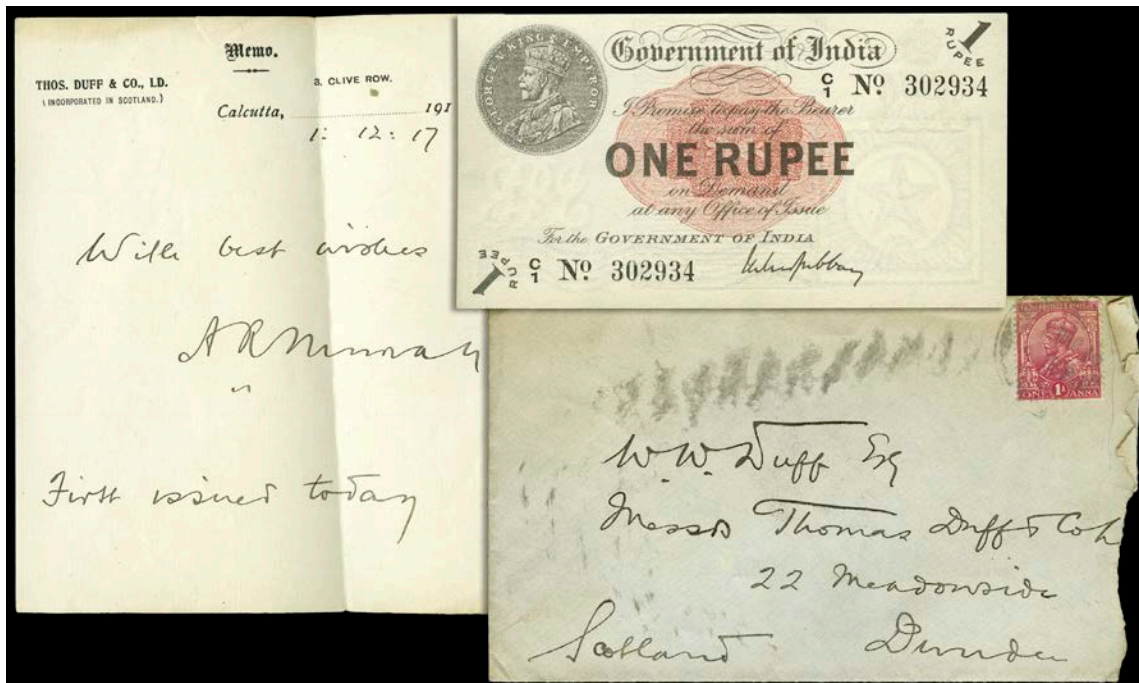 Memo.
THOS. DUFF & CO., LD.
(INCORPORATED IN SCOTLAND.)
3. CLIVE ROW.
Calcutta, 191
1: 12: 17
With best wishes
A R Murray
First issued today
GEORGE V KING & EMPEROR
Government of India
1 RUPEE
C/1 Nº 302934
I Promise to pay the Bearer
the sum of
ONE RUPEE
on Demand
at any Office of Issue
For the GOVERNMENT OF INDIA
1 RUPEE
C/1 Nº 302934
1A
ONE ANNA
W. W. Duff Esq
Messrs Thomas Duff & Co
22 Meadowside
Scotland Dundee